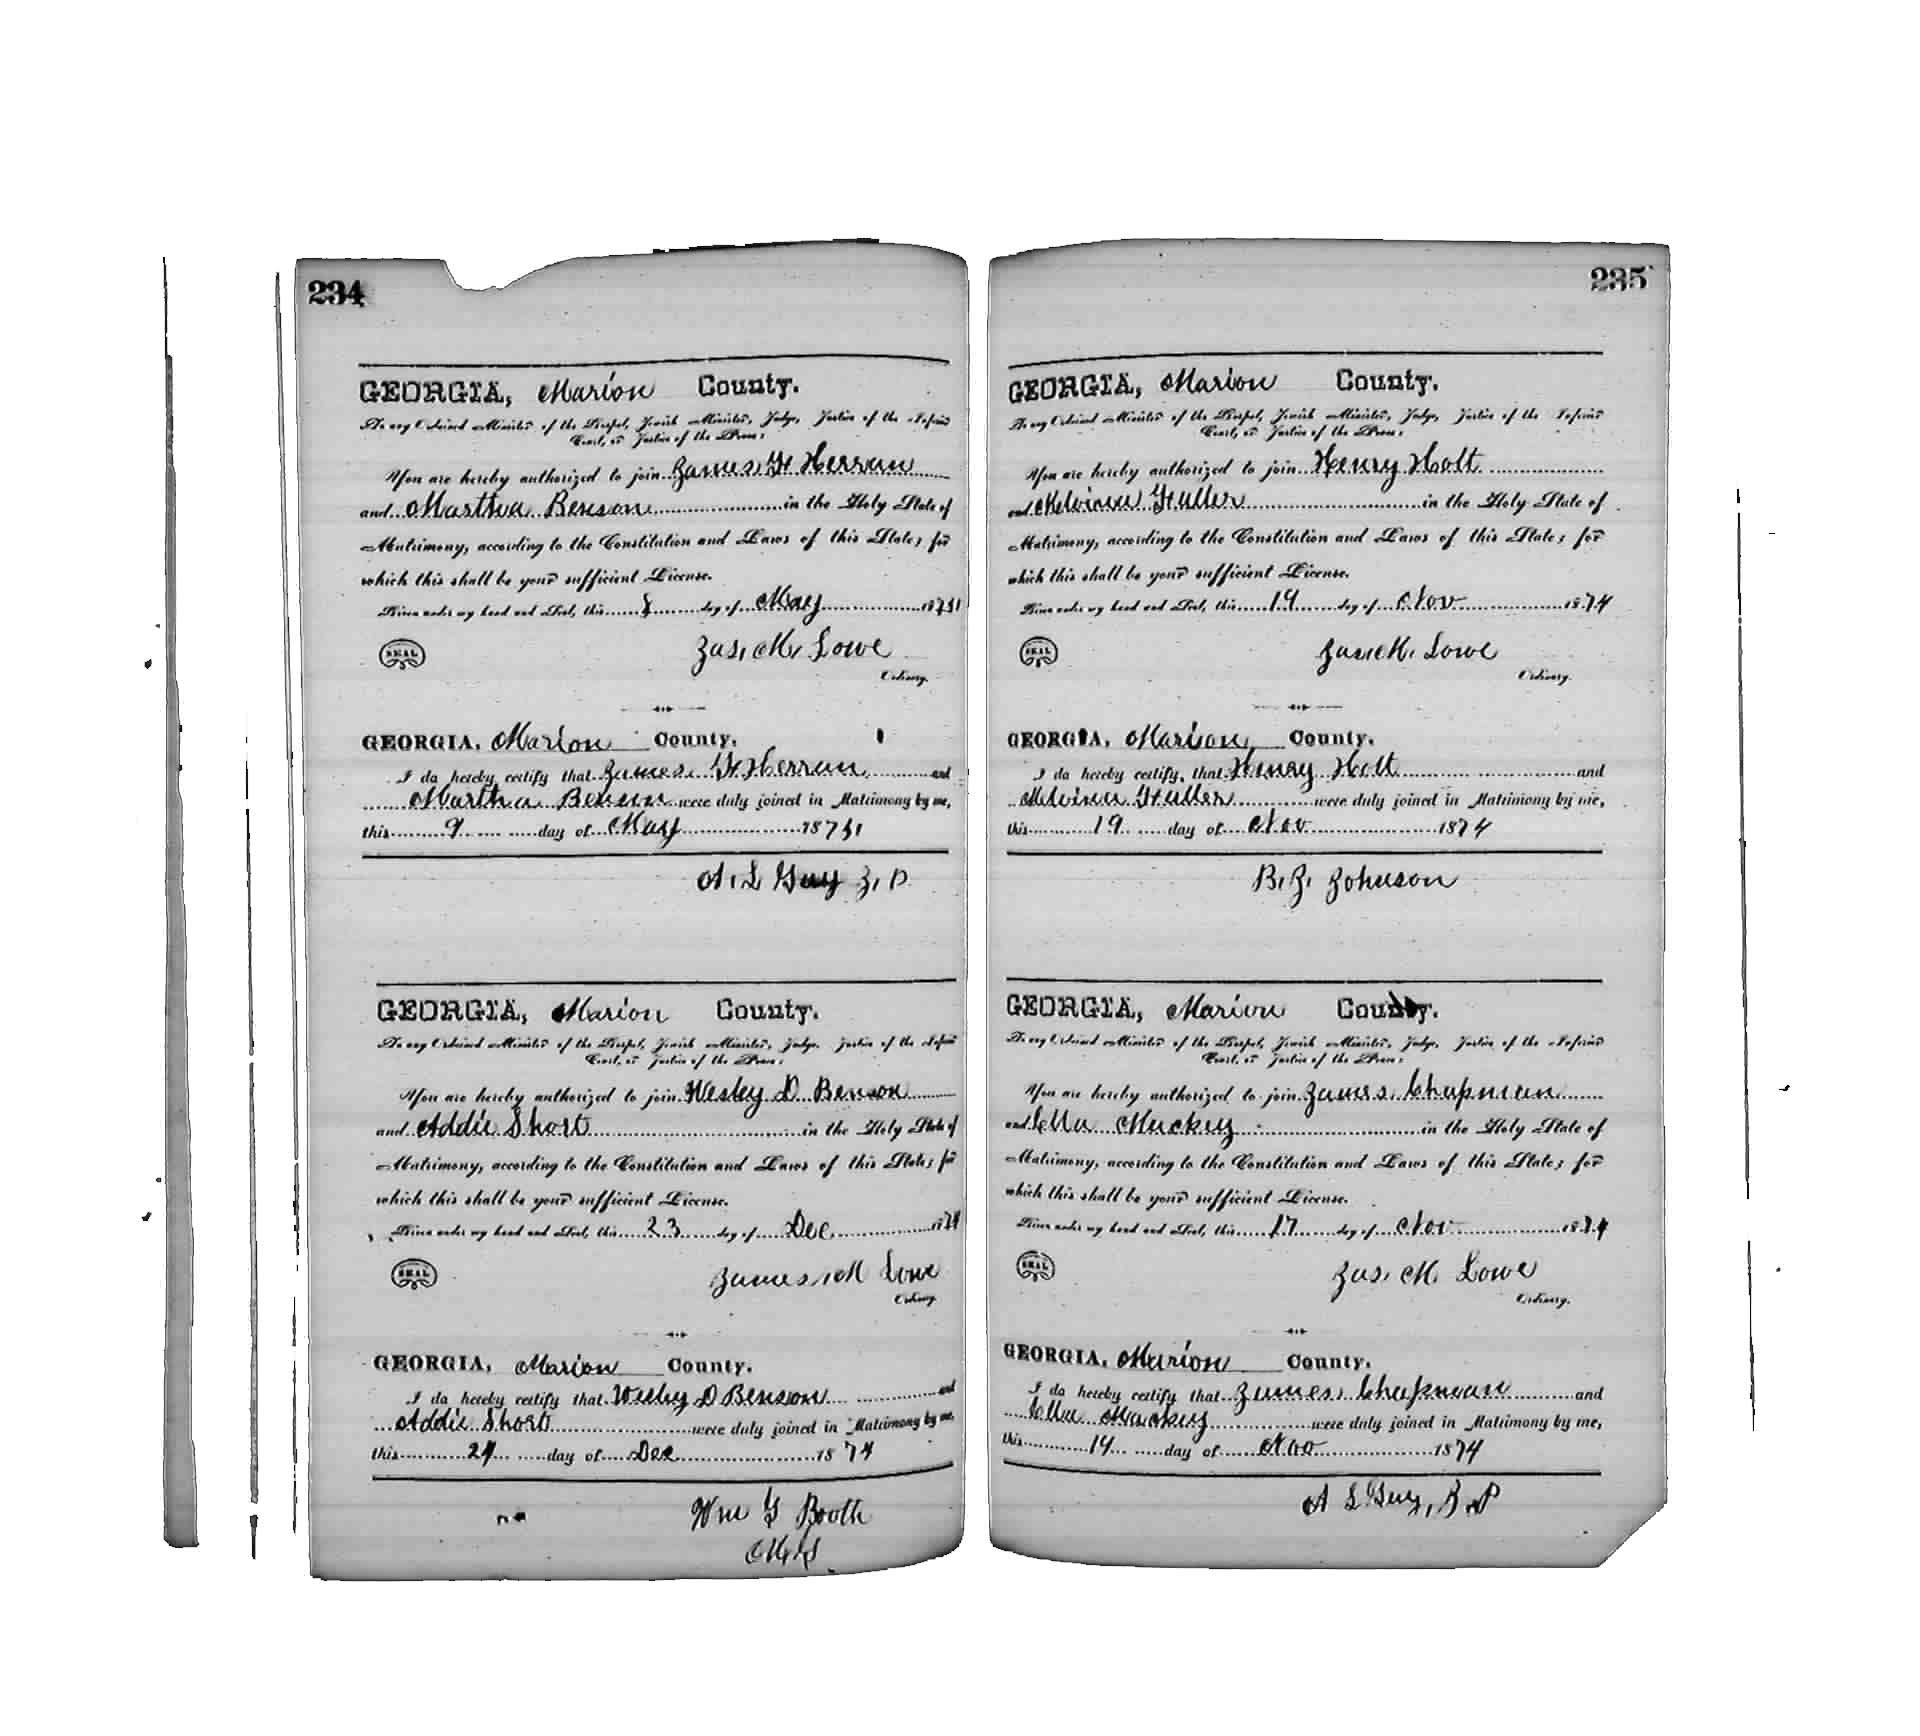 234
GEORGIA, Marion County.
To any Ordained Minister of the Gospel, Jewish Minister, Judge, Justice of the Inferior
Court, or Justice of the Peace:
You are hereby authorized to join James F Herran
and Martha Benson in the Holy State of
Matrimony, according to the Constitution and Laws of this State; for
which this shall be your sufficient License.
Given under my hand and Seal, this 8 day of May 187
SEAL
Jas. M. Lowe
Ordinary.
GEORGIA, Marion County.
I do hereby certify that James F Herran and
Martha Benson were duly joined in Matrimony by me,
this 9 day of May 187
A. L Guy J. P.
GEORGIA, Marion County.
To any Ordained Minister of the Gospel, Jewish Minister, Judge, Justice of the Inferior
Court, or Justice of the Peace:
You are hereby authorized to join Wesley D Benson
and Addie Short in the Holy State of
Matrimony, according to the Constitution and Laws of this State; for
which this shall be your sufficient License.
Given under my hand and Seal, this 23 day of Dec 1874
SEAL
James M Lowe
Ordinary.
GEORGIA, Marion County.
I do hereby certify that Wesley D Benson and
Addie Short were duly joined in Matrimony by me,
this 24 day of Dec 1874
Wm G Booth
M.G.
235
GEORGIA, Marion County.
To any Ordained Minister of the Gospel, Jewish Minister, Judge, Justice of the Inferior
Court, or Justice of the Peace:
You are hereby authorized to join Henry Holt
and Melvina Fuller in the Holy State of
Matrimony, according to the Constitution and Laws of this State; for
which this shall be your sufficient License.
Given under my hand and Seal, this 19 day of Nov 1874
SEAL
Jas. M. Lowe
Ordinary.
GEORGIA, Marion County.
I do hereby certify, that Henry Holt and
Melvina Fuller were duly joined in Matrimony by me,
this 19 day of Nov 1874
B. J. Johnson
GEORGIA, Marion County.
To any Ordained Minister of the Gospel, Jewish Minister, Judge, Justice of the Inferior
Court, or Justice of the Peace:
You are hereby authorized to join James Chapman
and Ella Mackey in the Holy State of
Matrimony, according to the Constitution and Laws of this State; for
which this shall be your sufficient License.
Given under my hand and Seal, this 17 day of Nov 1874
SEAL
Jas. M. Lowe
Ordinary.
GEORGIA, Marion County.
I do hereby certify that James Chapman and
Ella Mackey were duly joined in Matrimony by me,
this 19 day of Nov 1874
A L Guy, J. P